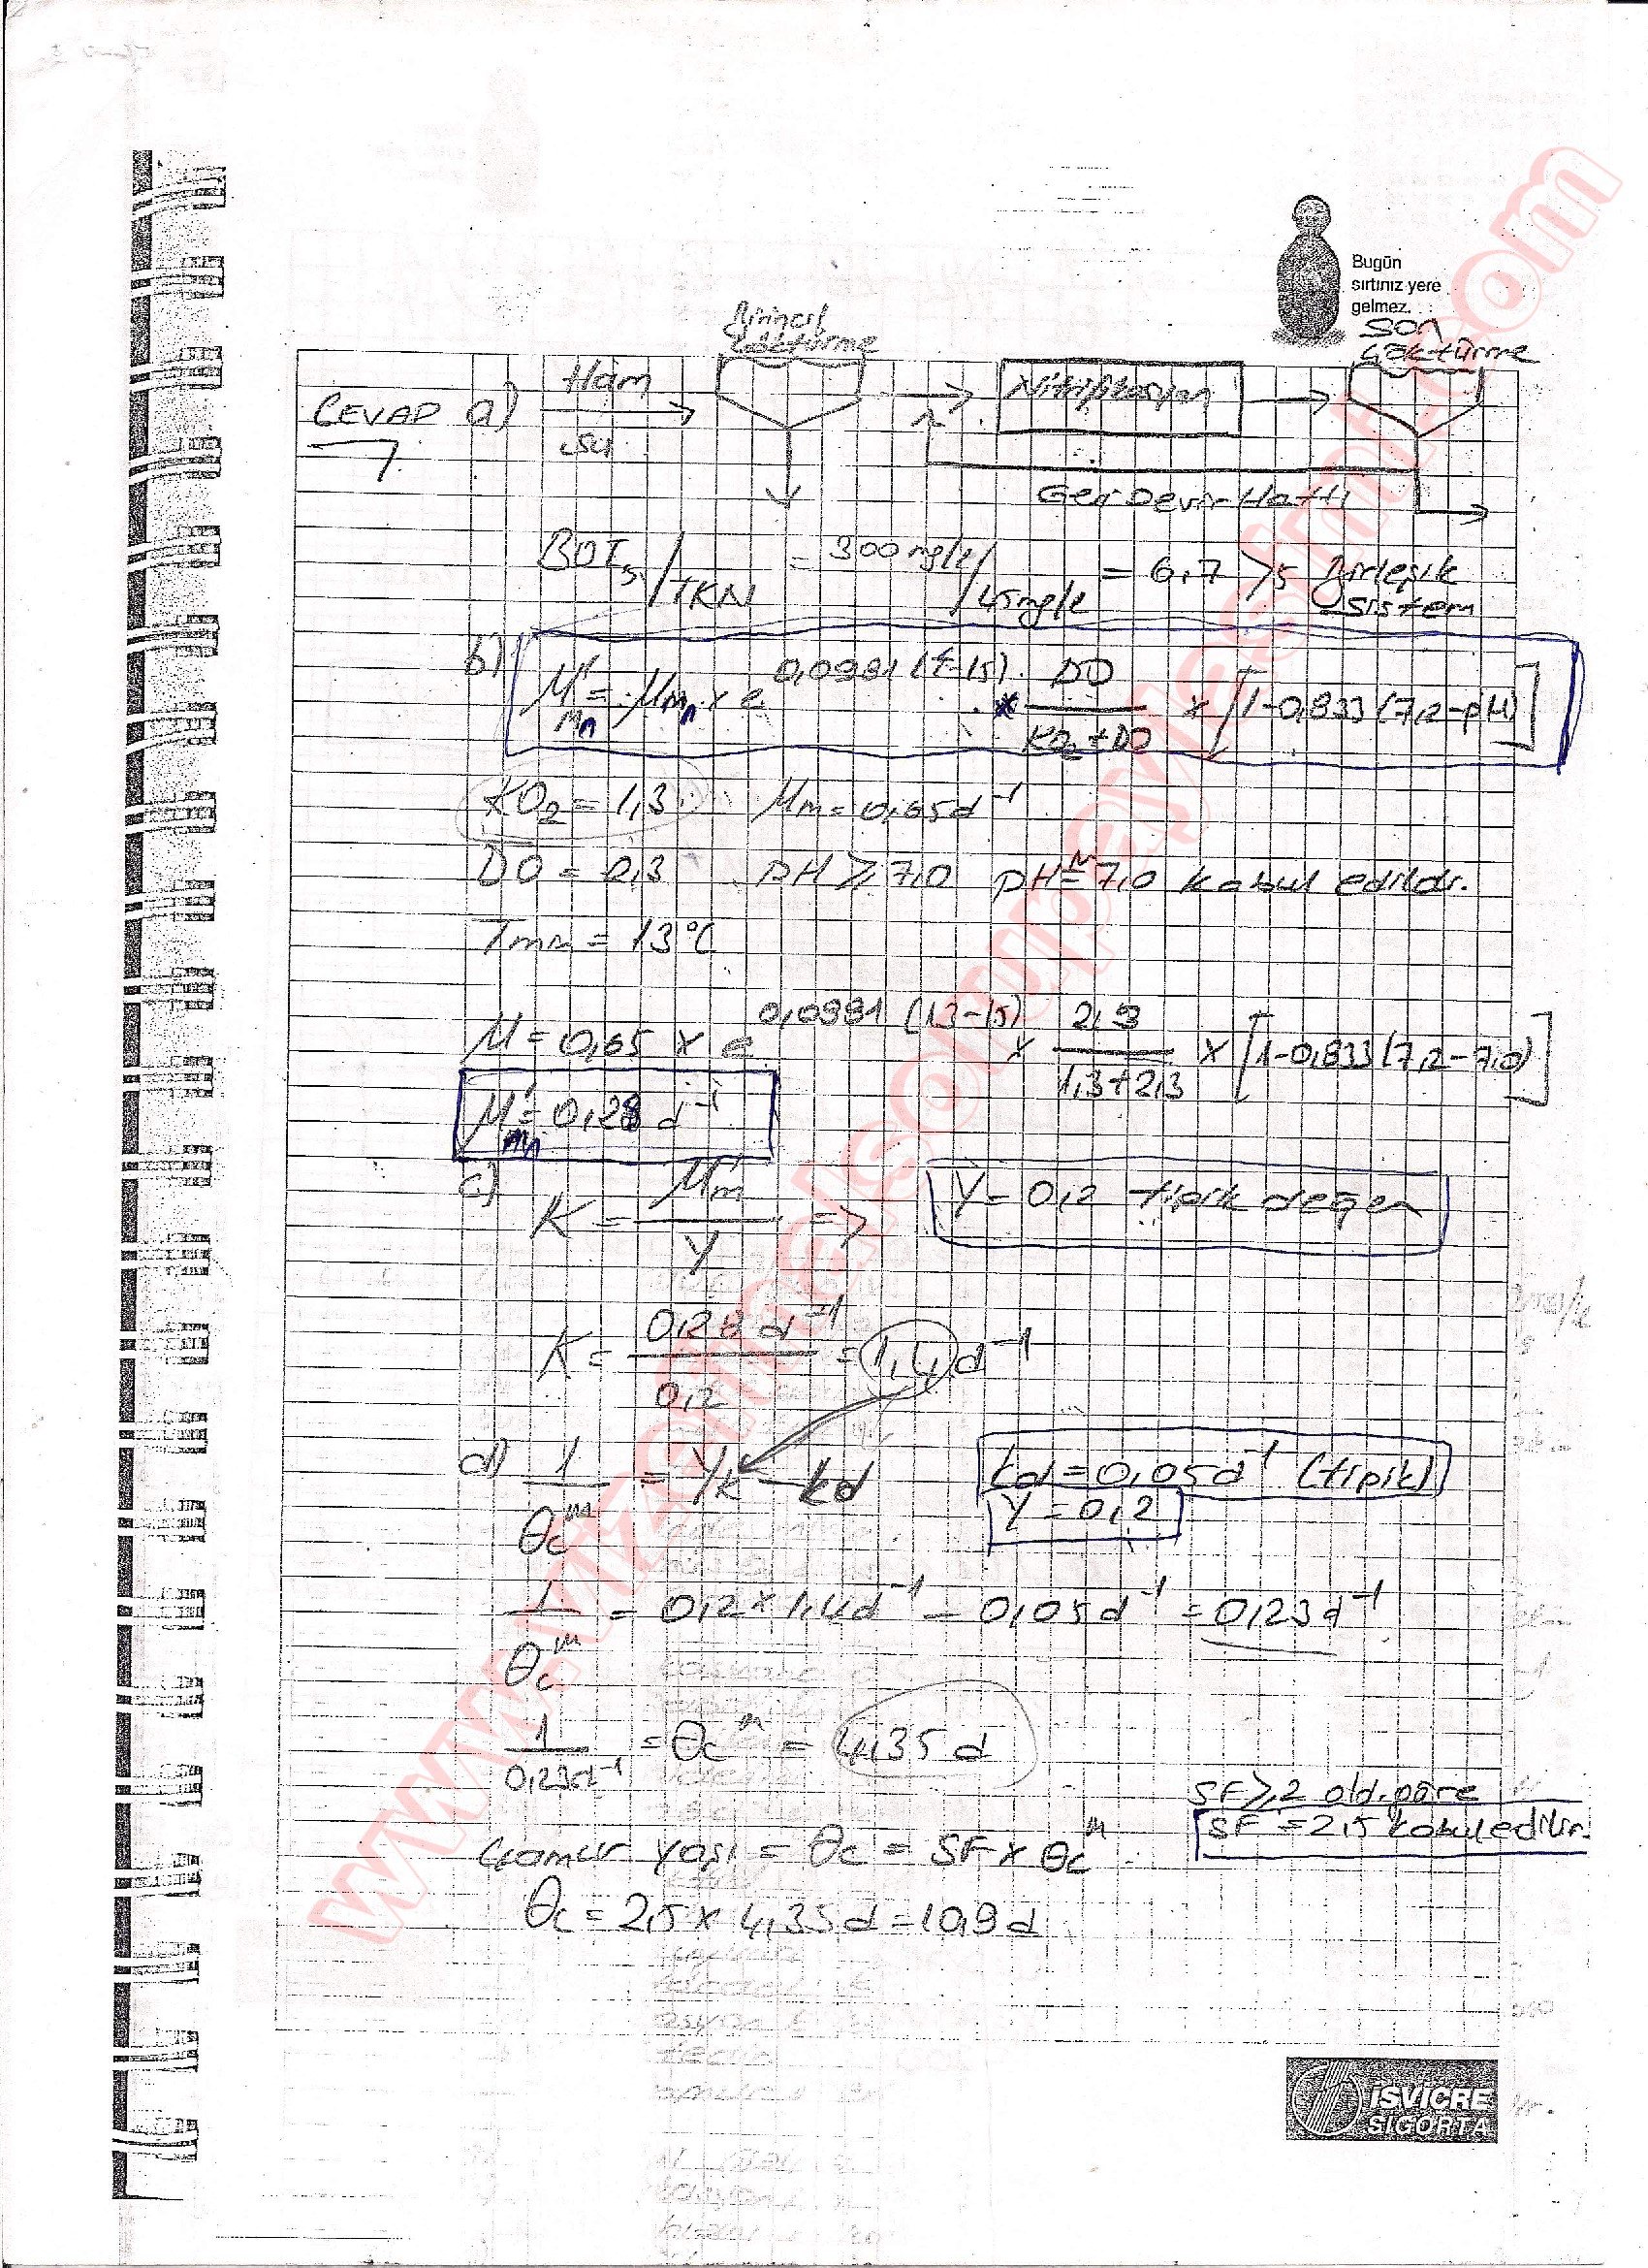 Bugün
sırtınız yere
gelmez.
Birincil
çöktürme
Son
çöktürme
CEVAP a)
Ham
su
Nitrifikasyon
Geri Devir Hattı
BOI₅/TKN = 300 mg/l / 45 mg/l = 6,7 >5 Birleşik
sistem
b) μ'mn = μmn x e^0,0981(t-15) x DO/(KO₂+DO) x [1-0,833(7,2-pH)]
KO₂ = 1,3 μm = 0,65 d⁻¹
DO = 2,3 pH ≥ 7,0 pH = 7,0 kabul edildi.
Tmin = 13°C
μ = 0,65 x e^0,0981(13-15) x 2,3/(1,3+2,3) x [1-0,833(7,2-7,0)]
μ'mn = 0,28 d⁻¹
c) K = μ'm/Y => Y = 0,2 tipik değer
K = 0,28 d⁻¹/0,2 = 1,4 d⁻¹
d) 1/θcᵐ = Yk - kd kd = 0,05 d⁻¹ (tipik)
Y = 0,2
1/θcᵐ = 0,2 x 1,4 d⁻¹ - 0,05 d⁻¹ = 0,23 d⁻¹
1/0,23 d⁻¹ = θcᵐ = 4,35 d
SF ≥ 2 old. göre
SF = 2,5 kabul edilir.
Çamur yaşı = θc = SF x θcᵐ
θc = 2,5 x 4,35 d = 10,9 d
İSVİÇRE
SİGORTA